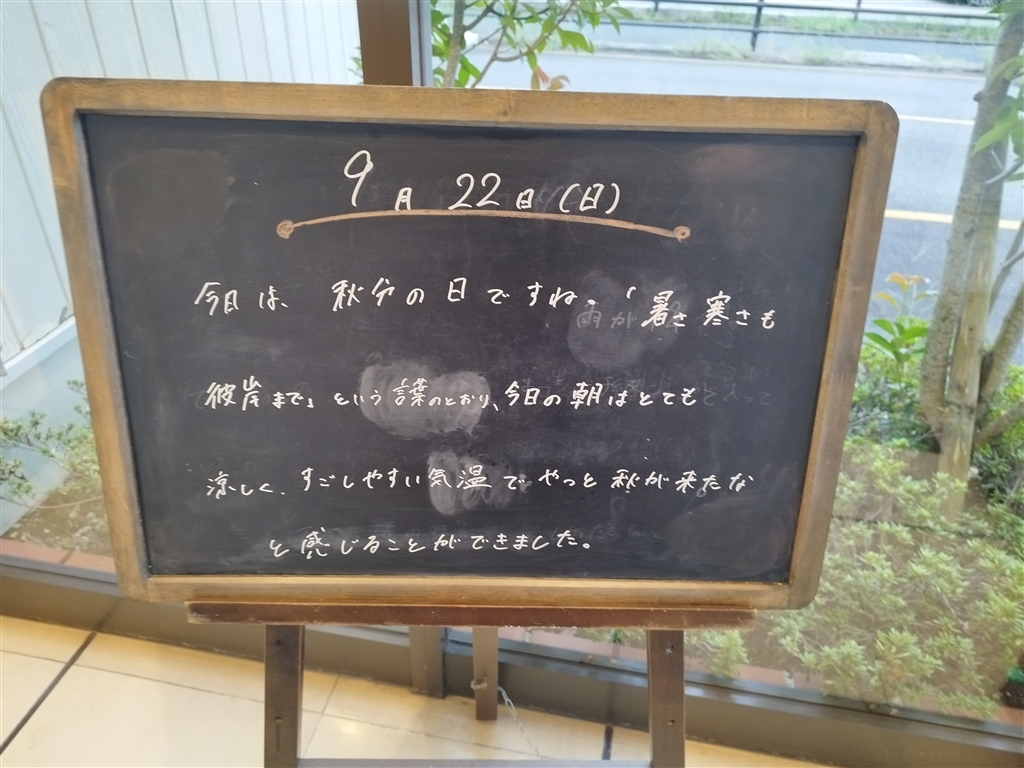 9月 22日(日)
今日は、秋分の日ですね。「暑さ寒さも
彼岸まで」という言葉のとおり、今日の朝はとても
涼しく、すごしやすい気温でやっと秋が来たな
と感じることができました。